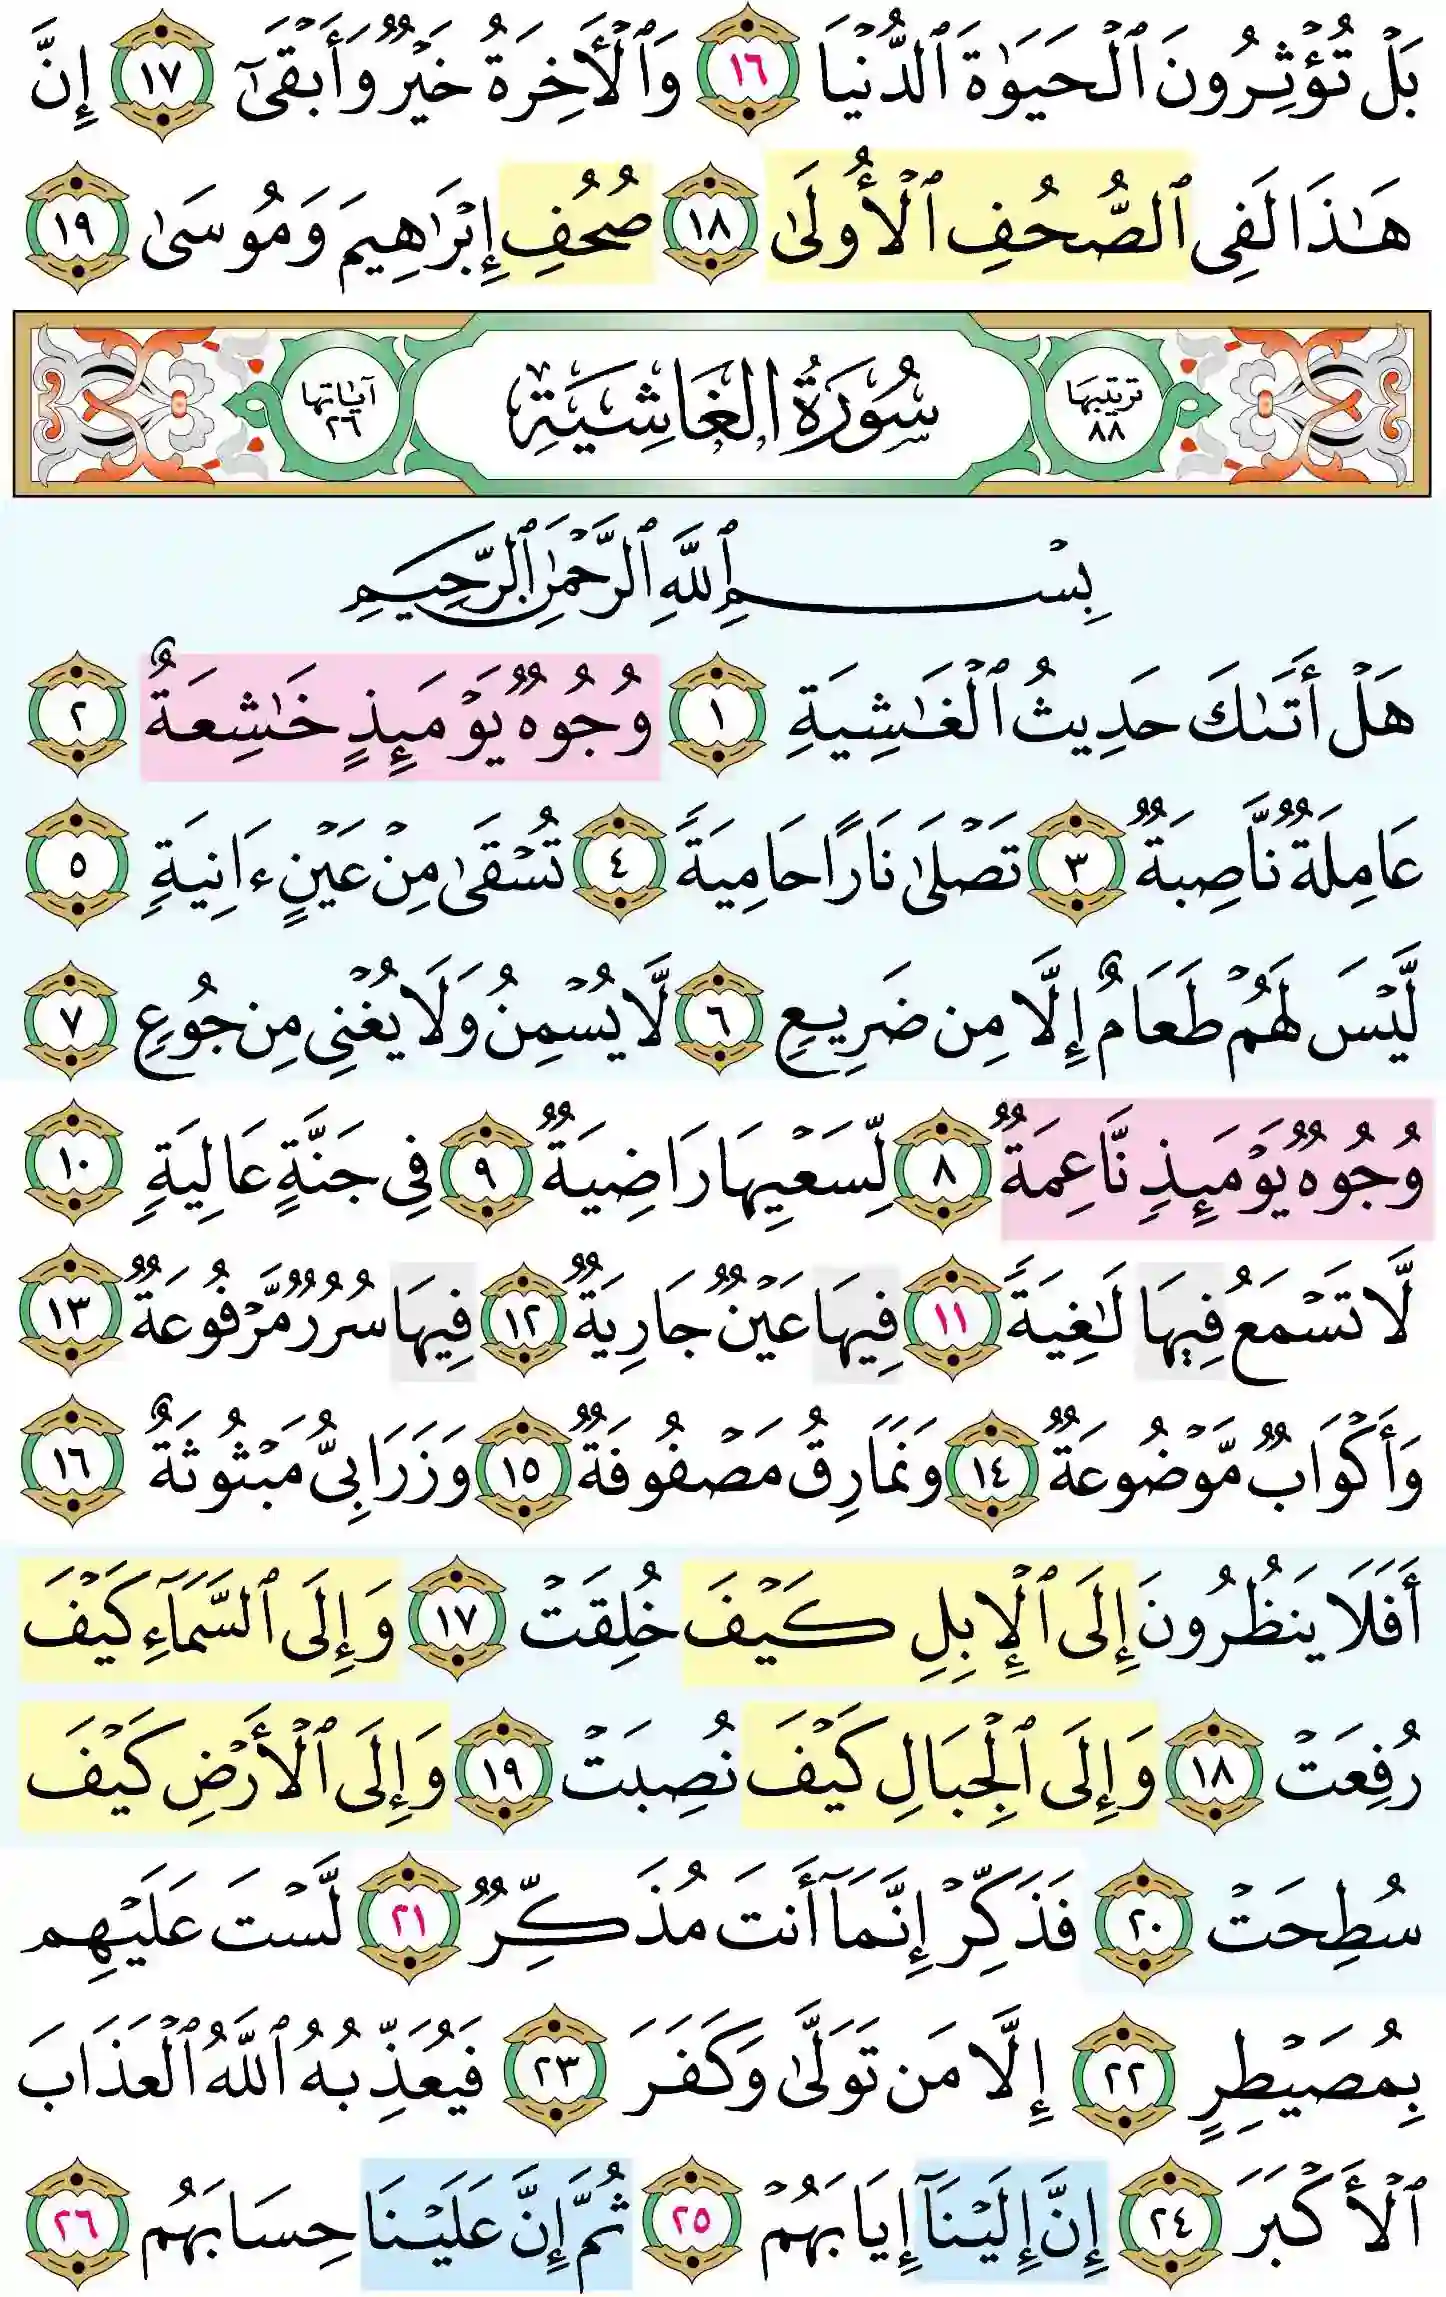 بَلْ تُؤْثِرُونَ ٱلْحَيَوٰةَ ٱلدُّنْيَا ١٦ وَٱلْأٓخِرَةُ خَيْرٌ وَأَبْقَىٰٓ ١٧ إِنَّ
هَٰذَا لَفِى ٱلصُّحُفِ ٱلْأُولَىٰ ١٨ صُحُفِ إِبْرَٰهِيمَ وَمُوسَىٰ ١٩
ترتيبها ٨٨ سُورَةُ الغَاشِيَةِ آياتها ٢٦
بِسْمِ ٱللَّهِ ٱلرَّحْمَٰنِ ٱلرَّحِيمِ
هَلْ أَتَىٰكَ حَدِيثُ ٱلْغَٰشِيَةِ ١ وُجُوهٌ يَوْمَئِذٍ خَٰشِعَةٌ ٢
عَامِلَةٌ نَّاصِبَةٌ ٣ تَصْلَىٰ نَارًا حَامِيَةً ٤ تُسْقَىٰ مِنْ عَيْنٍ ءَانِيَةٍ ٥
لَّيْسَ لَهُمْ طَعَامٌ إِلَّا مِن ضَرِيعٍ ٦ لَّا يُسْمِنُ وَلَا يُغْنِى مِن جُوعٍ ٧
وُجُوهٌ يَوْمَئِذٍ نَّاعِمَةٌ ٨ لِّسَعْيِهَا رَاضِيَةٌ ٩ فِى جَنَّةٍ عَالِيَةٍ ١٠
لَّا تَسْمَعُ فِيهَا لَٰغِيَةً ١١ فِيهَا عَيْنٌ جَارِيَةٌ ١٢ فِيهَا سُرُرٌ مَّرْفُوعَةٌ ١٣
وَأَكْوَابٌ مَّوْضُوعَةٌ ١٤ وَنَمَارِقُ مَصْفُوفَةٌ ١٥ وَزَرَابِىُّ مَبْثُوثَةٌ ١٦
أَفَلَا يَنظُرُونَ إِلَى ٱلْإِبِلِ كَيْفَ خُلِقَتْ ١٧ وَإِلَى ٱلسَّمَآءِ كَيْفَ
رُفِعَتْ ١٨ وَإِلَى ٱلْجِبَالِ كَيْفَ نُصِبَتْ ١٩ وَإِلَى ٱلْأَرْضِ كَيْفَ
سُطِحَتْ ٢٠ فَذَكِّرْ إِنَّمَآ أَنتَ مُذَكِّرٌ ٢١ لَّسْتَ عَلَيْهِم
بِمُصَيْطِرٍ ٢٢ إِلَّا مَن تَوَلَّىٰ وَكَفَرَ ٢٣ فَيُعَذِّبُهُ ٱللَّهُ ٱلْعَذَابَ
ٱلْأَكْبَرَ ٢٤ إِنَّ إِلَيْنَآ إِيَابَهُمْ ٢٥ ثُمَّ إِنَّ عَلَيْنَا حِسَابَهُم ٢٦